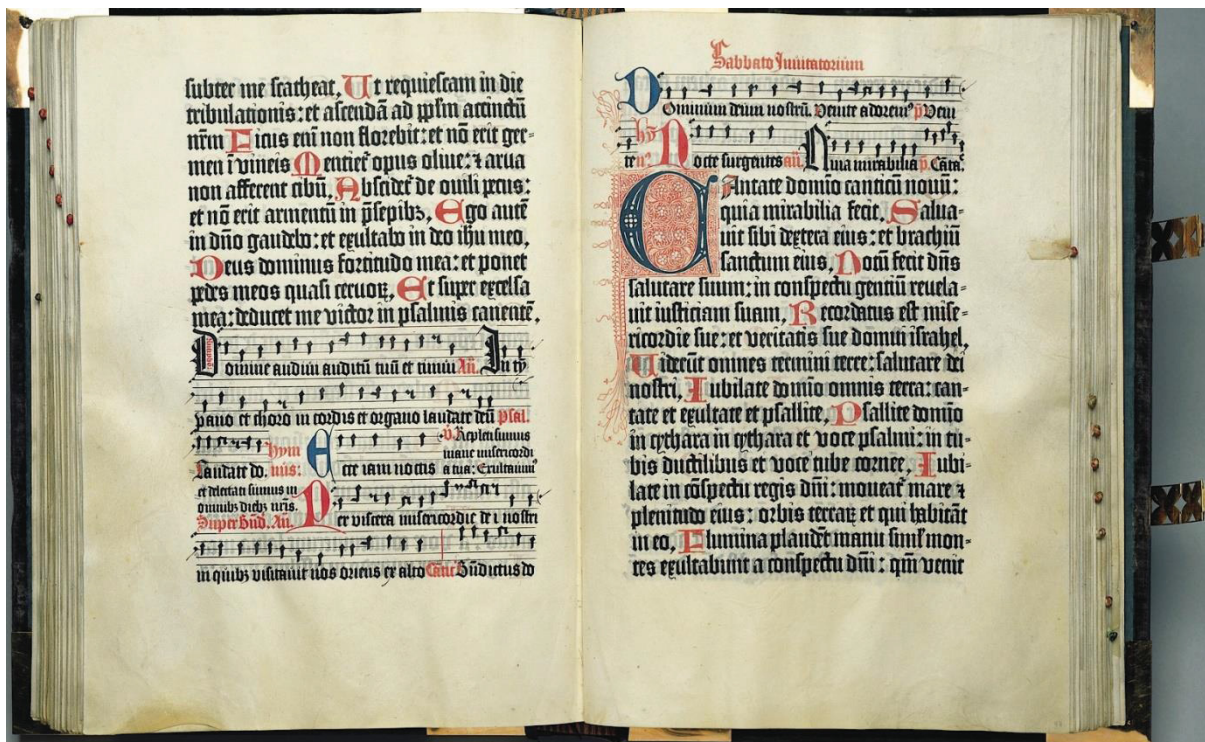 subter me scatheat, Ut requiescam in die
tribulationis: et ascendā ad pplm accinctū
nrm̄ Ficus eni non florebit: et nō erit ger=
men ī vineis Mentiet᷑ opus olive: ⁊ arva
non afferent cibū, Abscidet᷑ de ovili pecus:
et nō erit armentū in p̄sepibꝫ, Ego autē
in dn̄o gaudebo: et exultabo in deo ihu meo,
Deus dominus fortitudo mea: et ponet
pedes meos quasi cervoꝝ, Et super excelsa
mea: deducet me victor in psalmis canentē,
Domine audivi auditū tuū et timui An̄. In tȳ
pano et choro in cordis et organo laudate deū Psal.
Laudate do. hym
nus: Ecce iam noctis
V̄. Repleti sumus
mane misericordi
a tua: Exultavimꝰ
et delectati sumus in
omnibꝫ diebꝫ nr̄is.
Super Bn̄d. An̄. Per viscera misericordie de i nostri
in quibꝫ visitavit nos oriens ex alto Cāt Bn̄dictus do
Sabbato Invitatorium
Dominum deum nostrū. Venite adoremꝰ p̄ Veni
te. hȳ
nꝰ. Nocte surgentes an̄. Quia mirabilia p̄. Cāta.
Cantate domīo canticū novū:
quia mirabilia fecit, Salva=
vit sibi dextera eius: et brachiū
sanctum eius, Notū fecit dn̄s
salutare suum: in conspectu gentiū revela=
vit iusticiam suam, Recordatus est mise=
ricordie sue: et veritatis sue domui israhel,
Viderūt omnes termini terre: salutare dei
nostri, Iubilate domīo omnis terra: can=
tate et exultate et psallite, Psallite domīo
in cythara in cythara et voce psalmi: in tu=
bis ductilibus et voce tube cornee, Iubi=
late in cōspectu regis dn̄i: moveat᷑ mare ⁊
plenitudo eius: orbis terraꝝ et qui habitāt
in eo, Flumina plaudēt manu simł mon=
tes exultabunt a conspectu dn̄i: qm̄ venit